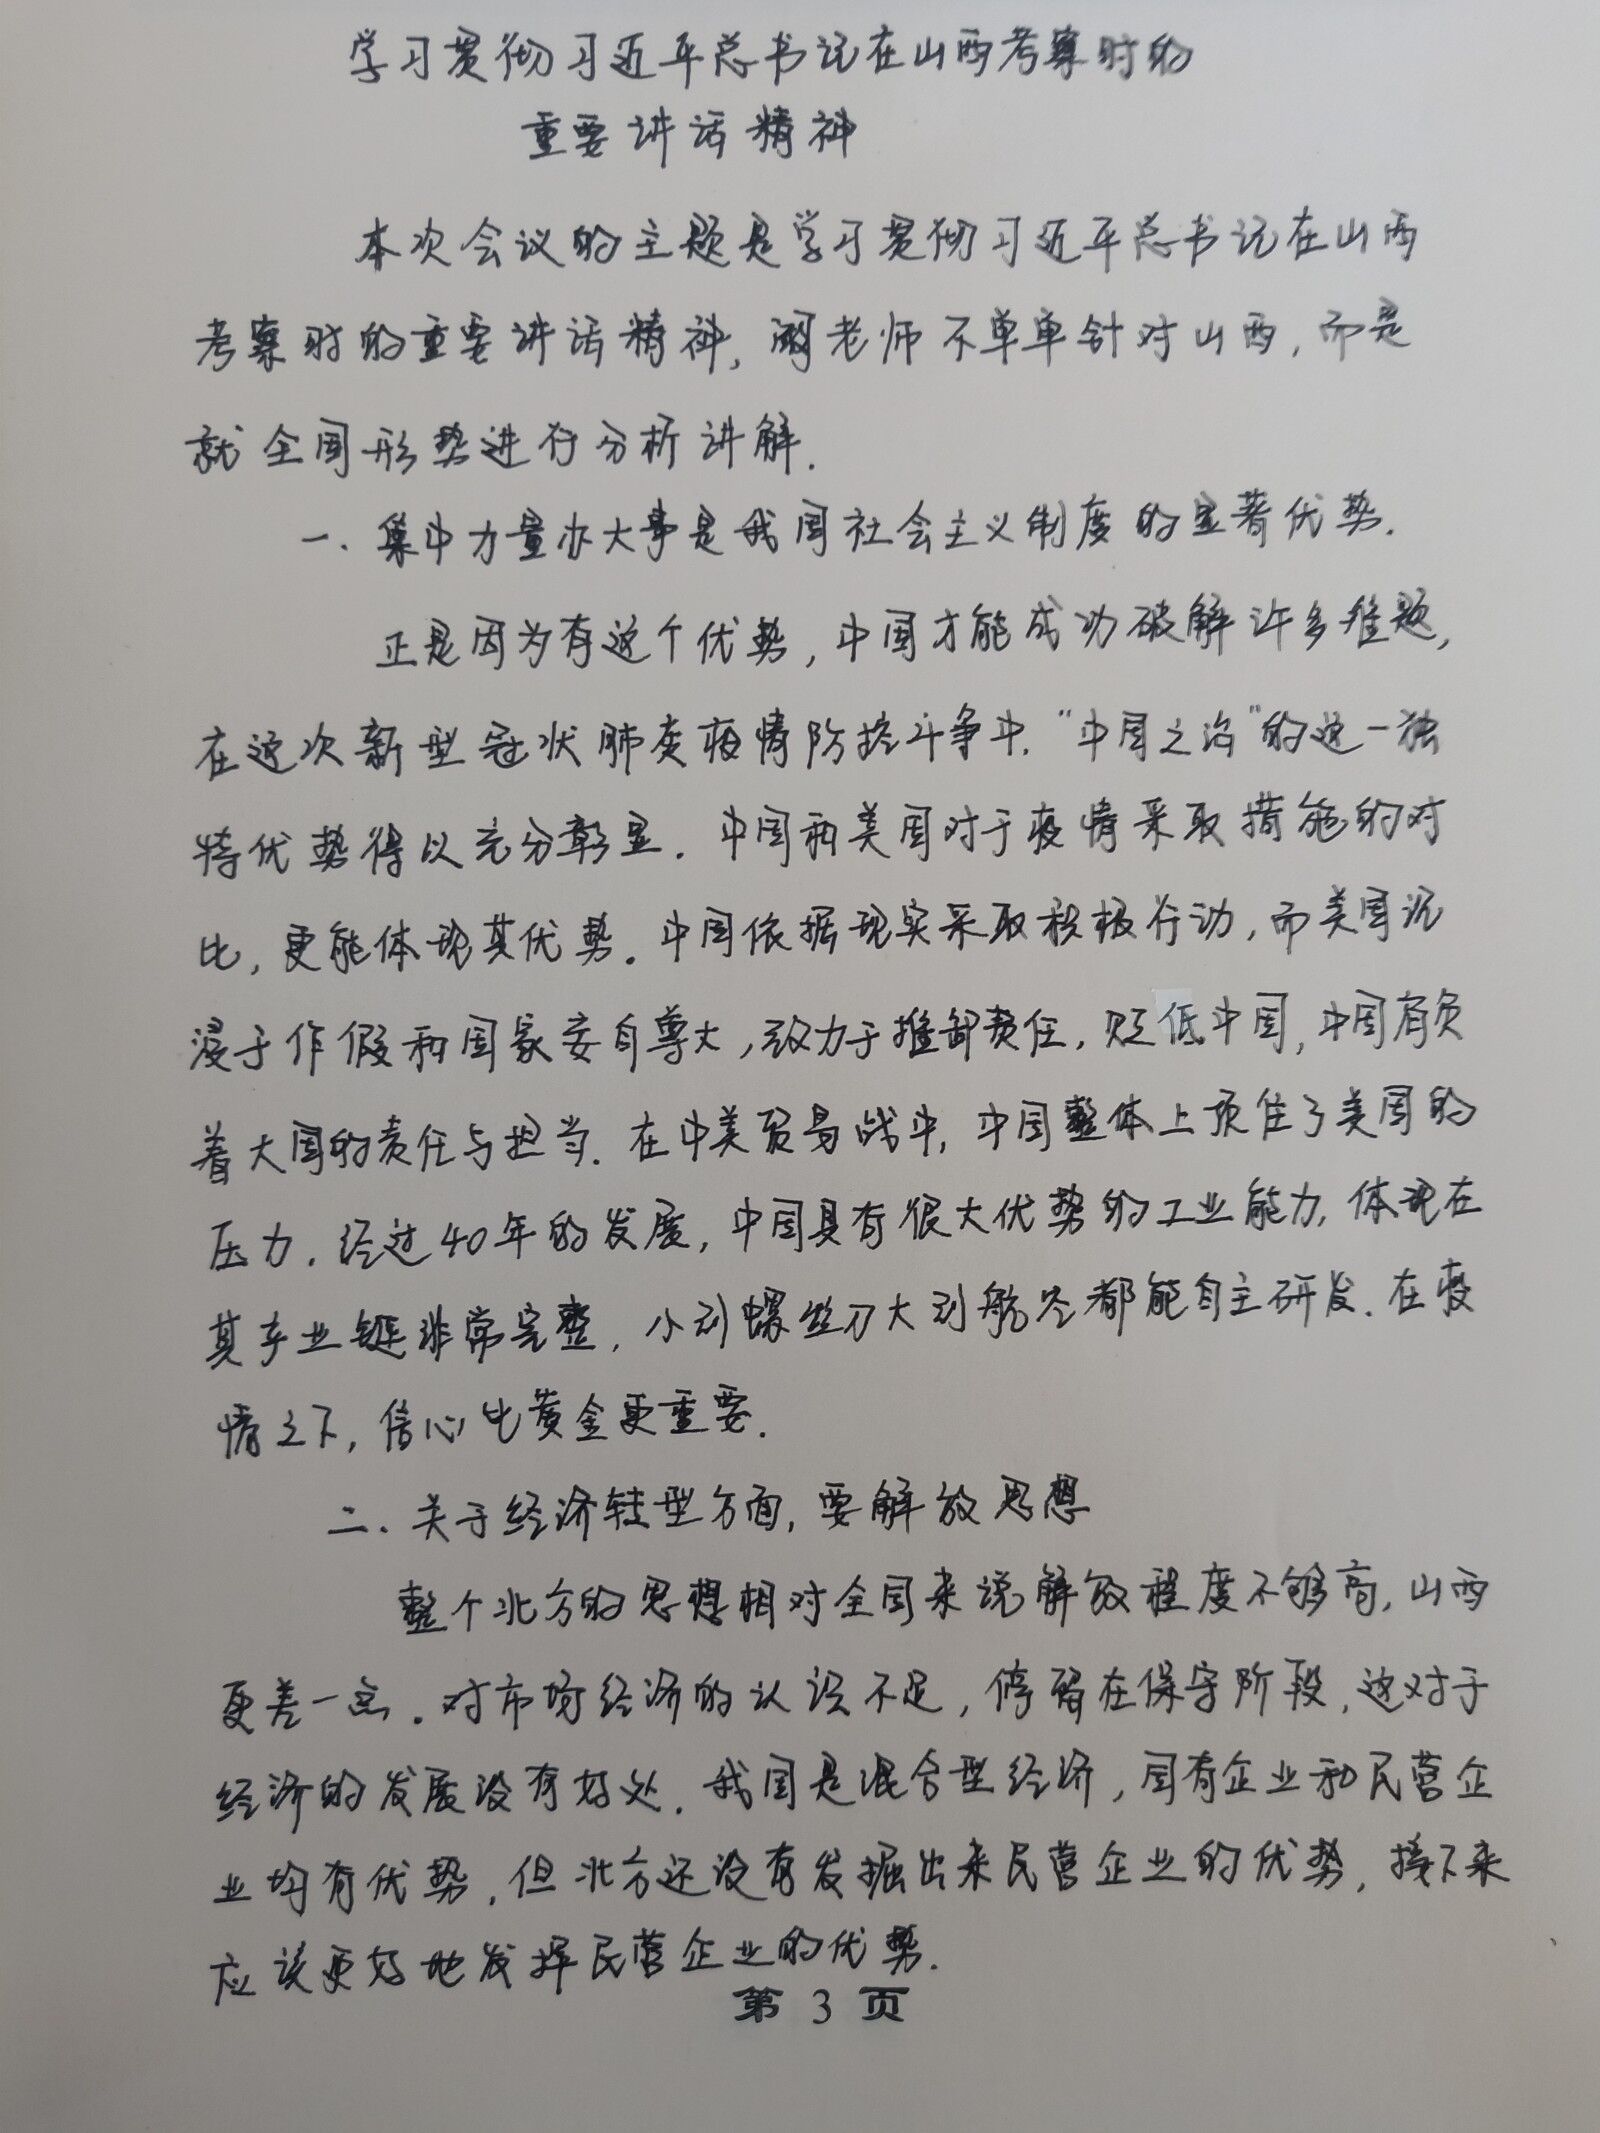 学习贯彻习近平总书记在山西考察时的
重要讲话精神
本次会议的主题是学习贯彻习近平总书记在山西
考察时的重要讲话精神,阚老师不单单针对山西,而是
就全国形势进行分析讲解.
一.集中力量办大事是我国社会主义制度的显著优势.
正是因为有这个优势,中国才能成功破解许多难题,
在这次新型冠状肺炎疫情防控斗争中.“中国之治”的这一独
特优势得以充分彰显.中国和美国对于疫情采取措施的对
比,更能体现其优势.中国依据现实采取积极行动,而美国沉
浸于作假和国家妄自尊大,致力于推卸责任,贬低中国,中国肩负
着大国的责任与担当.在中美贸易战中,中国整体上顶住了美国的
压力.经过40年的发展,中国具有很大优势的工业能力,体现在
其产业链非常完整,小到螺丝刀大到航空都能自主研发.在疫
情之下,信心比黄金更重要.
二.关于经济转型方面,要解放思想
整个北方的思想相对全国来说解放程度不够高,山西
更差一点.对市场经济的认识不足,停留在保守阶段,这对于
经济的发展没有好处.我国是混合型经济,国有企业和民营企
业均有优势,但北方还没有发掘出来民营企业的优势,接下来
应该更好地发挥民营企业的优势.
第 3 页